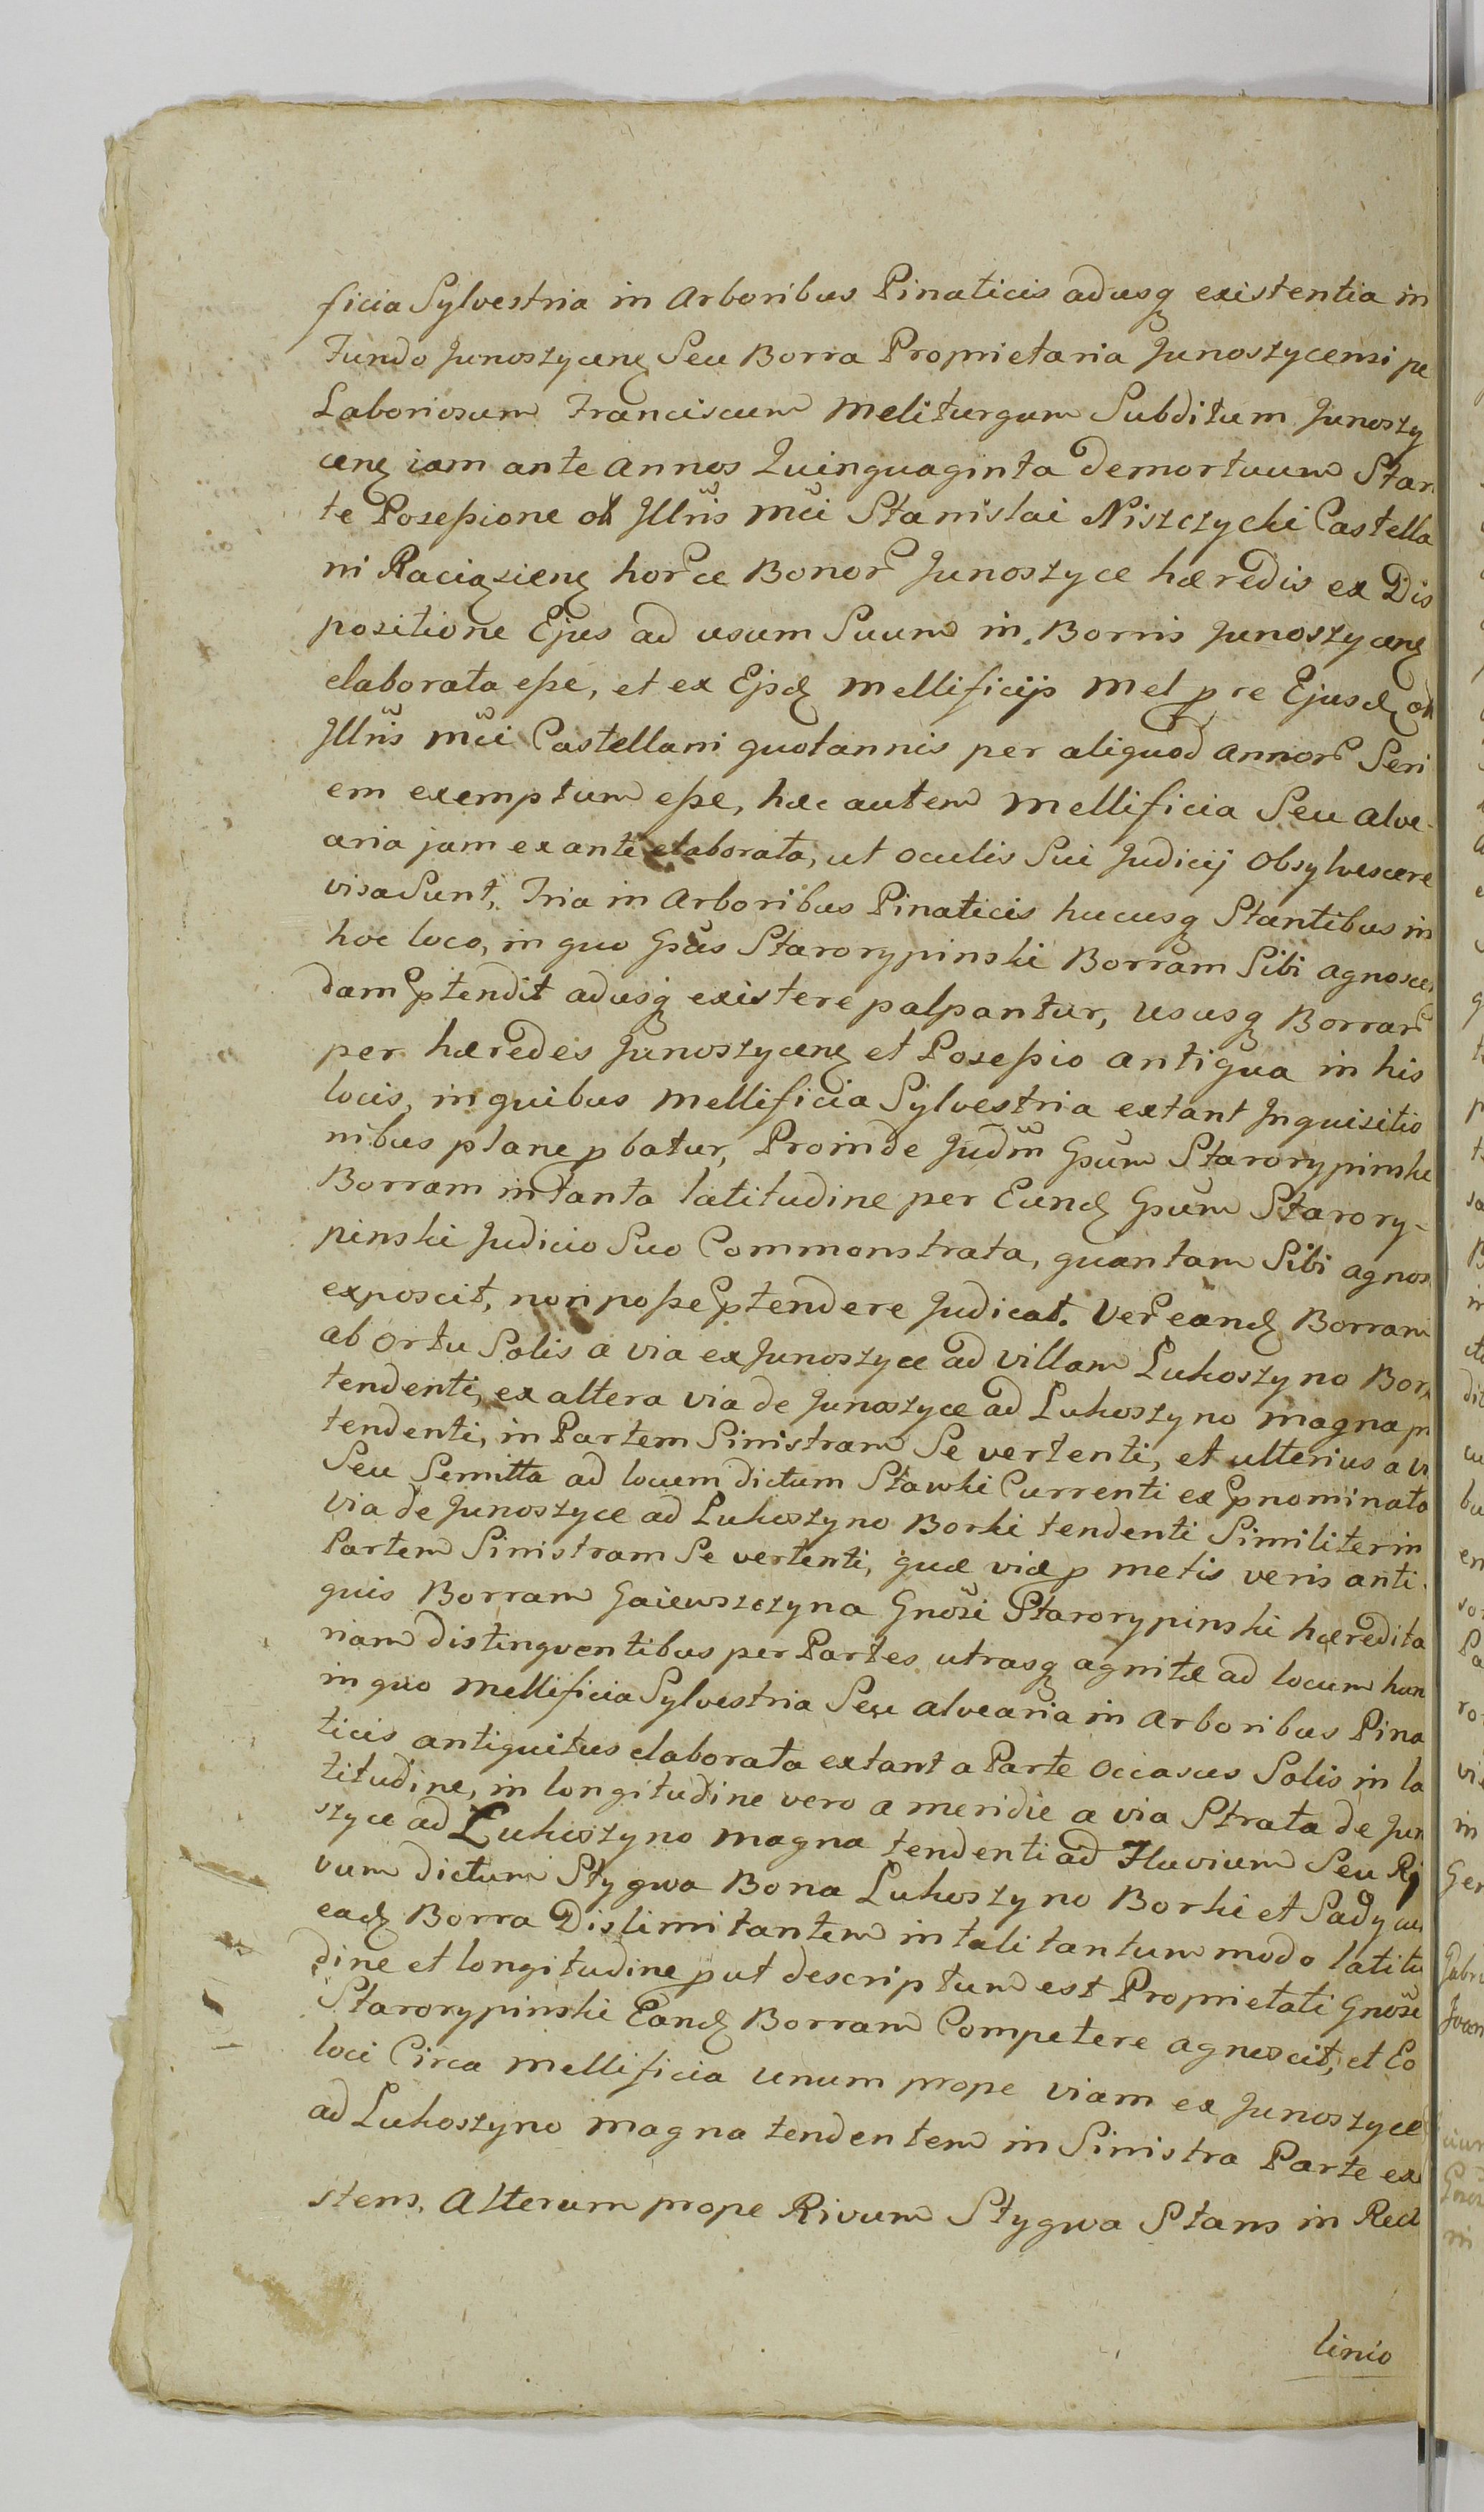 ficia Sylvestria in Arboribus Pinaticis adusq existentia in
Fundo Junoszycenę Seu Borra Proprietaria Junoszycensi pe
Laboriosum Franciscum Meliturgum Subditum Junoszy
cenę iam ante Annos Quinquaginta demortuum Stan
te Poseßione oli Jllris Mci Stanislai Niszczycki Castella
ni Raciązienę horce Bonor Junoszyce hæredis ex Dis
positione Ejus ad usum Suum in Borris Junoszycenę
elaborata eße, et ex Ejsdę Mellificijs Mel pre Ejusdę oli
Jllris Mci Castellani quotannis per aliquod Annor Seri
em exemptum eße, hæc autem Mellificia Seu Alve-
aria jam exante elaborata, ut oculis Sui Judicij Obsylvescere
visa Sunt, Tria in Arboribus Pinaticis hucusq Stantibus in
hoc loco, in quo Gsus Starorypinski Borram Sibi agnoscen
dam ptendit adusq existere palpantur, Ususq Borrar
per hæredes Junoszycenę et Poseßio antiqua in his
locis, in quibus Mellificia Sylvestria extant Jnquisitio
nibus plane pbatur, Proinde Judm Gsum Starorypinski
Borram in tanta latitudine per Eundę Gsum Starory-
pinski Judicio Suo Commonstrata, quantam Sibi agnos
exposcit, non poße ptendere Judicat. Ver eandę Borram
ab Ortu Solis a via ex Junoszyce ad villam Lukoszyno Bork
tendenti, ex altera via de Junoszyce ad Lukoszyno Magna p
tendenti, in Partem Sinistram Se vertenti, et ulterius a vi
Seu Semitta ad locum dictum Stawki Currenti ex pnominata
via de Junoszyce ad Lukoszyno Borki tendenti Similiter in
Partem Sinistram Se vertenti, quæ viæ p metis veris anti-
quis Borram Gaiewszczyna Gnosi Starorypinski hæredita
riam distinguentibus per Partes utrasq agnitæ ad locum hun
in quo Mellificia Sylvestria Seu alvearia in Arboribus Pina
ticis antiquitus elaborata extant a Parte Occasus Solis in la
titudine, in longitudine vero a meridie a via Strata de Jun
szyce ad Lukoszyno Magna tendenti ad Fluvium Seu Ri
vum dictum Stygwa Bona Lukoszyno Borki et Sady cu
eadę Borra Dislimitantem in tali tantum modo latitu
dine et longitudine put descriptum est Proprietati Gnosi
Starorypinski Eandę Borram Competere agnoscit, et Eo
loci Circa Mellificia unum prope viam ex Junoszyce
ad Lukoszyno Magna tendentem in Sinistra Parte exi
stens, Alterum prope Rivum Stygwa Stans in Rect
linio